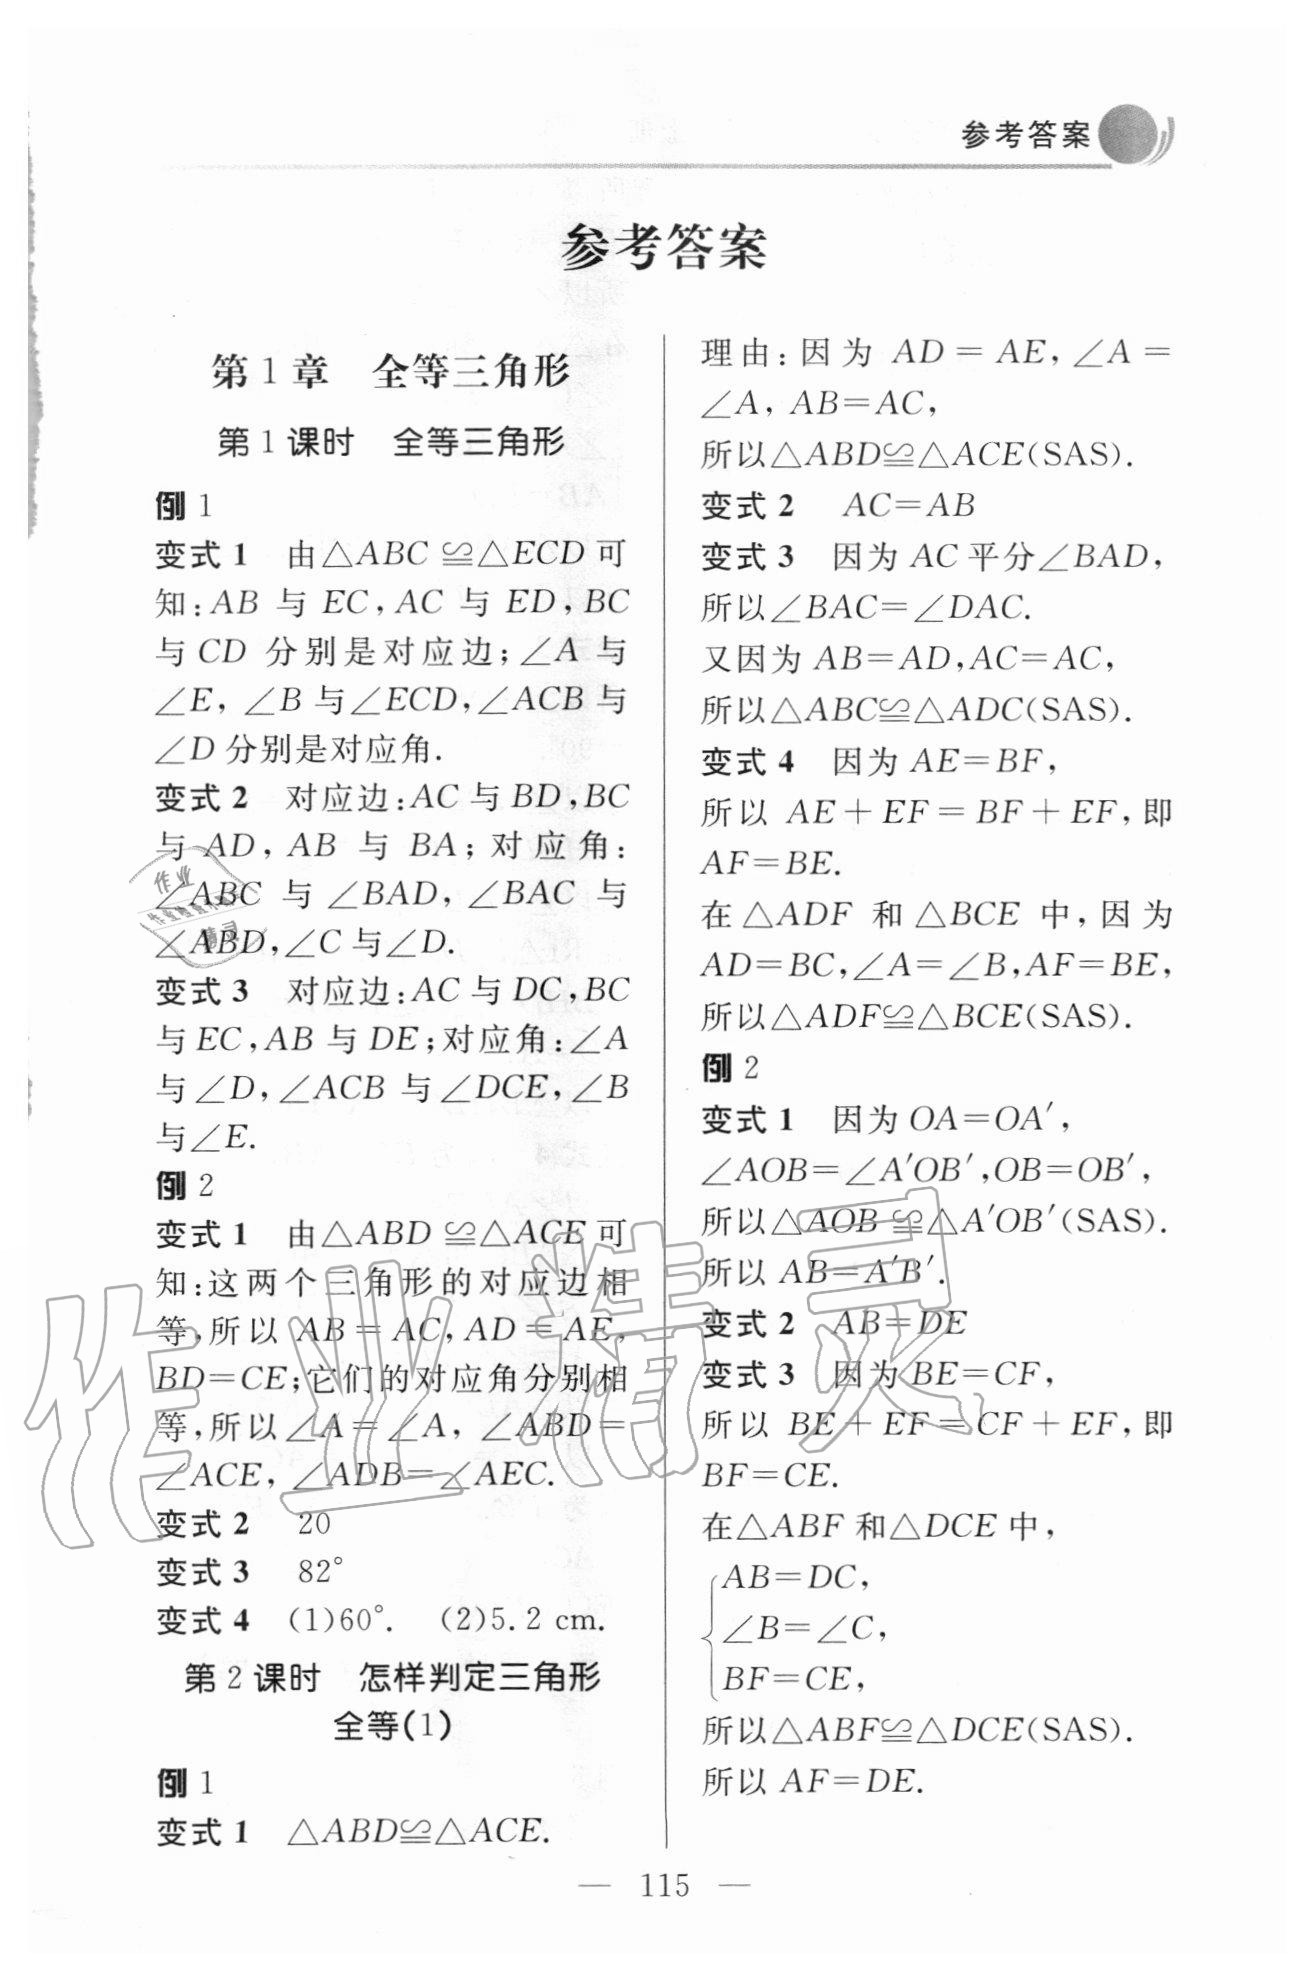 参考答案
参考答案
第1章 全等三角形
第1课时 全等三角形
例1
变式1 由△ABC≌△ECD可
知:AB与EC,AC与ED,BC
与CD分别是对应边;∠A与
∠E,∠B与∠ECD,∠ACB与
∠D分别是对应角.
变式2 对应边:AC与BD,BC
与AD,AB与BA;对应角:
∠ABC与∠BAD,∠BAC与
∠ABD,∠C与∠D.
变式3 对应边:AC与DC,BC
与EC,AB与DE;对应角:∠A
与∠D,∠ACB与∠DCE,∠B
与∠E.
例2
变式1 由△ABD≌△ACE可
知:这两个三角形的对应边相
等,所以AB=AC,AD=AE,
BD=CE;它们的对应角分别相
等,所以∠A=∠A,∠ABD=
∠ACE,∠ADB=∠AEC.
变式2 20
变式3 82°
变式4 (1)60°. (2)5.2 cm.
第2课时 怎样判定三角形
全等(1)
例1
变式1 △ABD≌△ACE.
理由:因为AD=AE,∠A=
∠A,AB=AC,
所以△ABD≌△ACE(SAS).
变式2 AC=AB
变式3 因为AC平分∠BAD,
所以∠BAC=∠DAC.
又因为AB=AD,AC=AC,
所以△ABC≌△ADC(SAS).
变式4 因为AE=BF,
所以AE+EF=BF+EF,即
AF=BE.
在△ADF和△BCE中,因为
AD=BC,∠A=∠B,AF=BE,
所以△ADF≌△BCE(SAS).
例2
变式1 因为OA=OA′,
∠AOB=∠A′OB′,OB=OB′,
所以△AOB≌△A′OB′(SAS).
所以AB=A′B′.
变式2 AB=DE
变式3 因为BE=CF,
所以BE+EF=CF+EF,即
BF=CE.
在△ABF和△DCE中,
AB=DC,
∠B=∠C,
BF=CE,
所以△ABF≌△DCE(SAS).
所以AF=DE.
— 115 —
作业精灵
作业
精灵